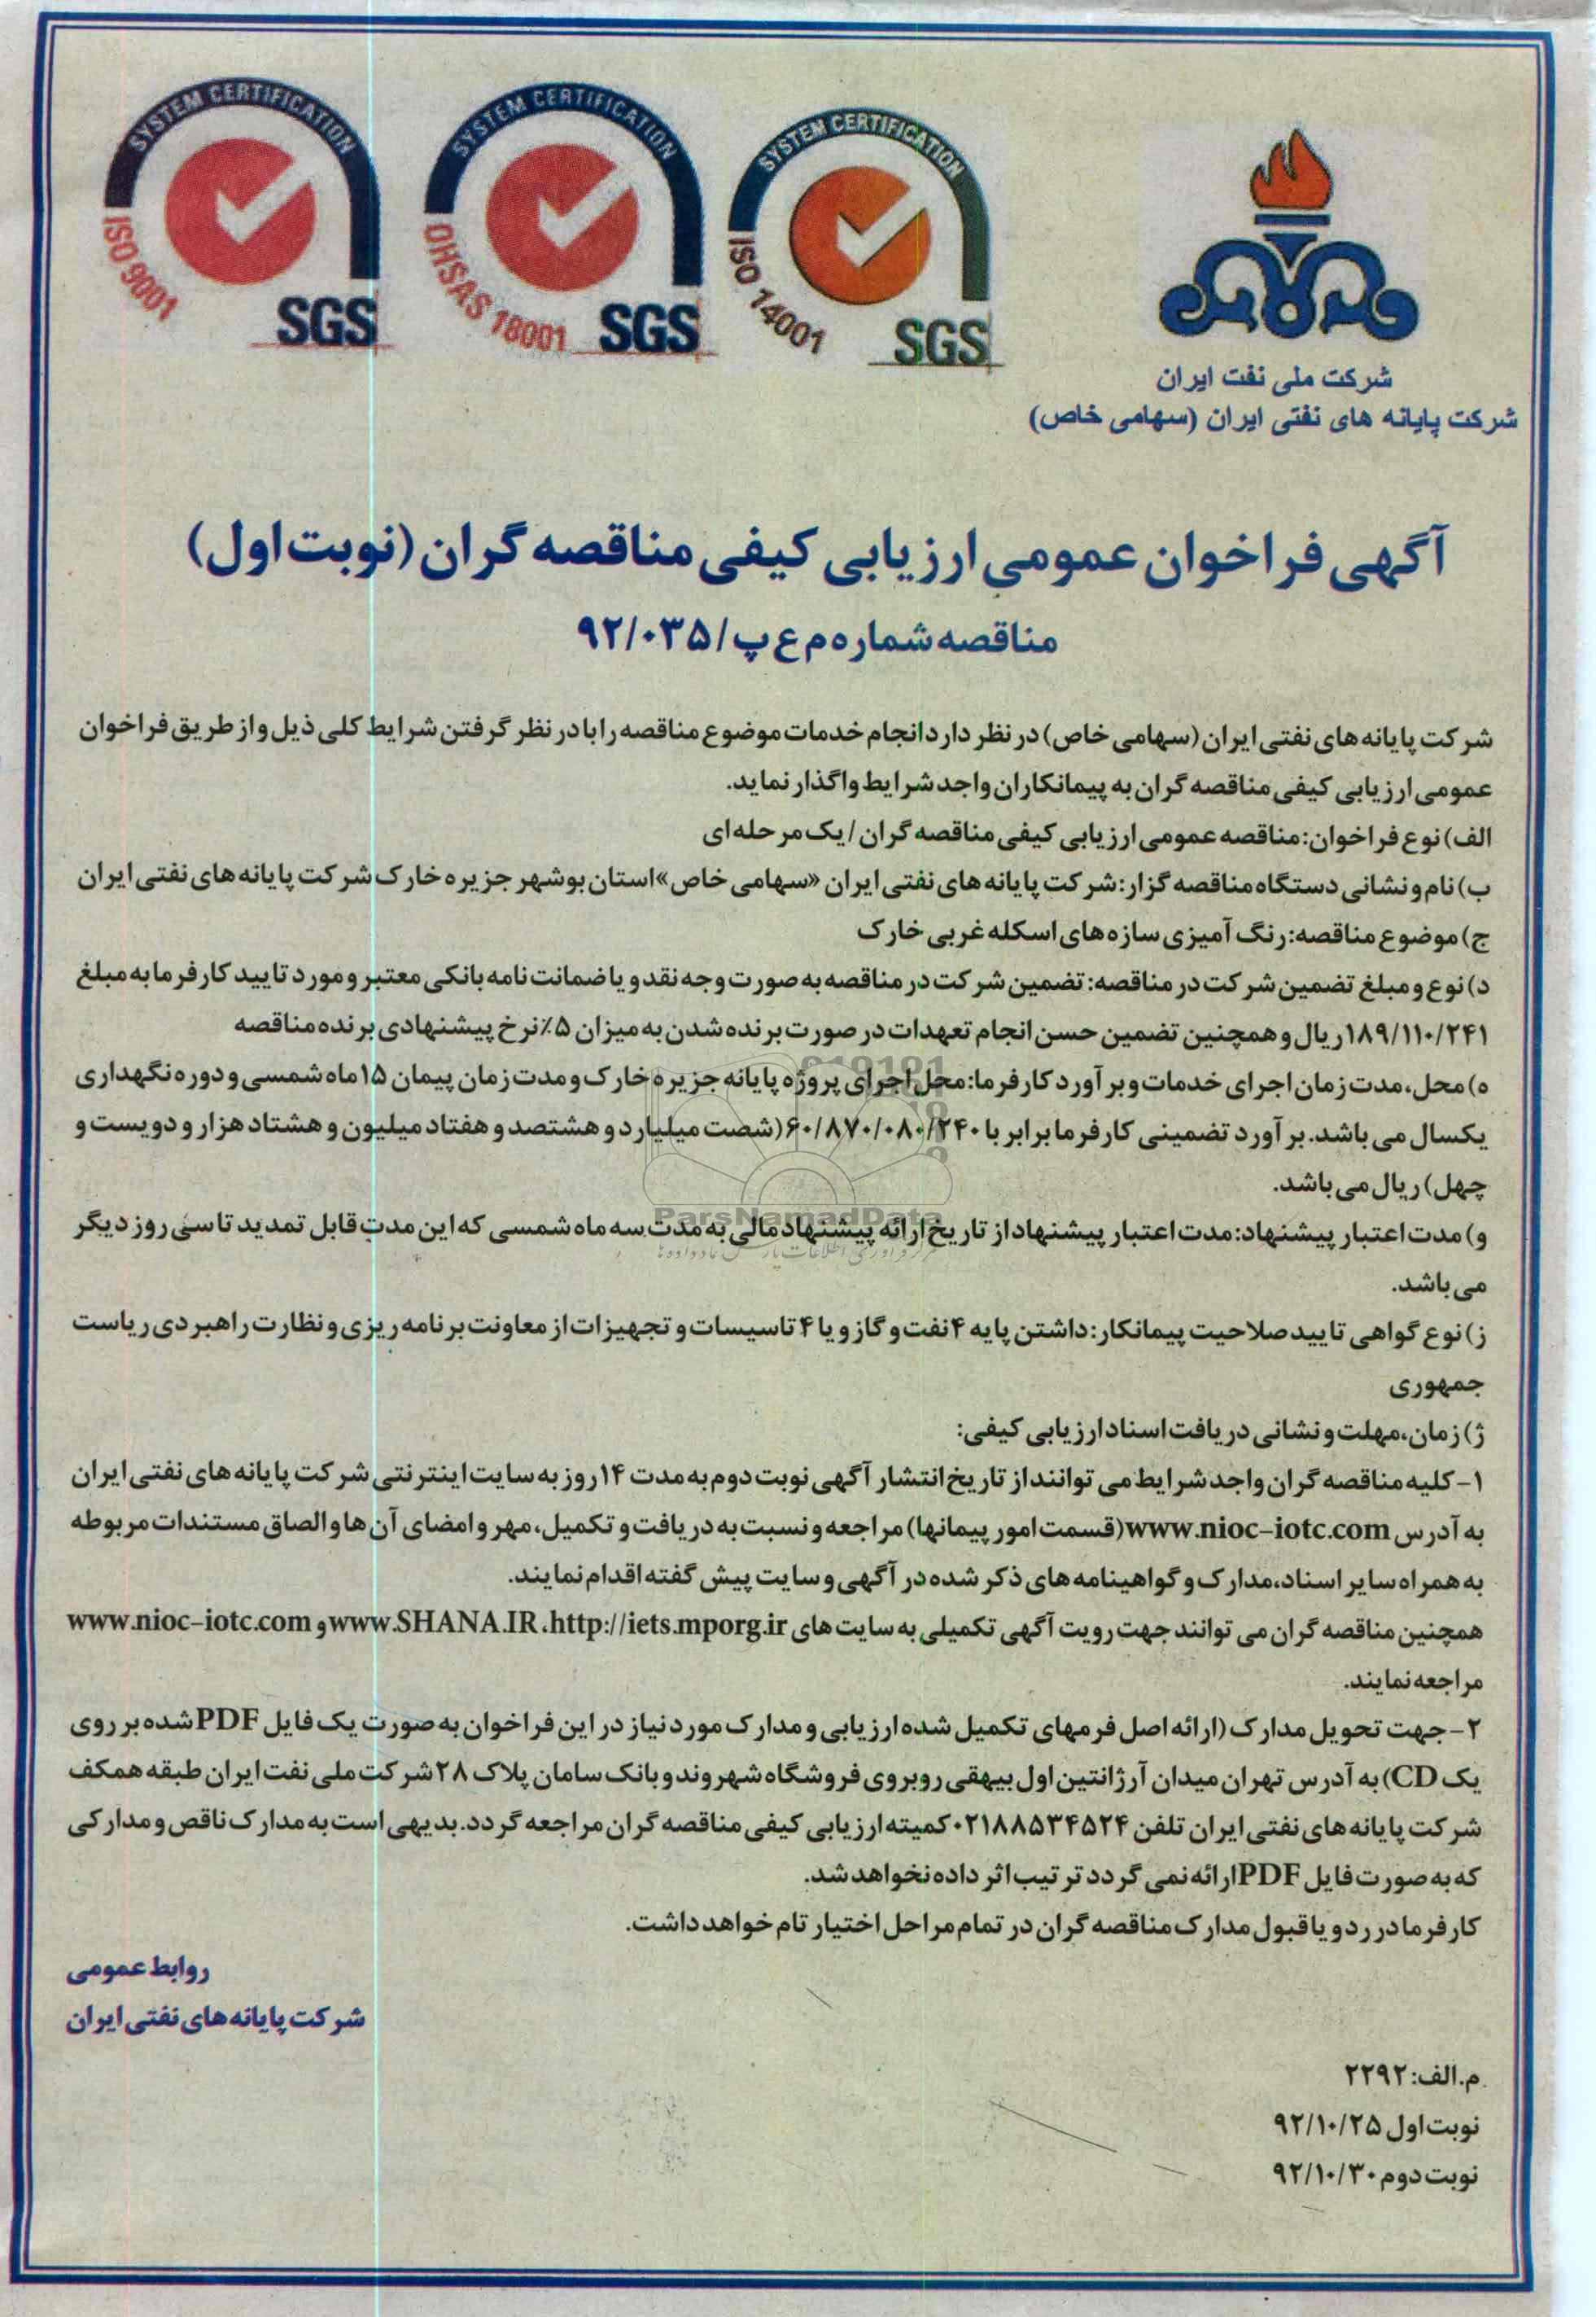 SYSTEM CERTIFICATION
ISO 9001
SGS
SYSTEM CERTIFICATION
OHSAS 18001
SGS
SYSTEM CERTIFICATION
ISO 14001
SGS
شرکت ملی نفت ایران
شرکت پایانه های نفتی ایران (سهامی خاص)
آگهی فراخوان عمومی ارزیابی کیفی مناقصه گران (نوبت اول)
مناقصه شماره م ع پ/۹۲/۰۳۵
شرکت پایانه های نفتی ایران (سهامی خاص) در نظر دارد انجام خدمات موضوع مناقصه را با در نظر گرفتن شرایط کلی ذیل و از طریق فراخوان
عمومی ارزیابی کیفی مناقصه گران به پیمانکاران واجد شرایط واگذار نماید.
الف) نوع فراخوان: مناقصه عمومی ارزیابی کیفی مناقصه گران / یک مرحله ای
ب) نام و نشانی دستگاه مناقصه گزار: شرکت پایانه های نفتی ایران «سهامی خاص» استان بوشهر جزیره خارک شرکت پایانه های نفتی ایران
ج) موضوع مناقصه: رنگ آمیزی سازه های اسکله غربی خارک
د) نوع و مبلغ تضمین شرکت در مناقصه: تضمین شرکت در مناقصه به صورت وجه نقد و یا ضمانت نامه بانکی معتبر و مورد تایید کارفرما به مبلغ
۱۸۹/۱۱۰/۲۴۱ ریال و همچنین تضمین حسن انجام تعهدات در صورت برنده شدن به میزان ۵٪ نرخ پیشنهادی برنده مناقصه
ه) محل، مدت زمان اجرای خدمات و برآورد کارفرما: محل اجرای پروژه پایانه جزیره خارک و مدت زمان پیمان ۱۵ ماه شمسی و دوره نگهداری
یکسال می باشد. برآورد تضمینی کارفرما برابر با ۶۰/۸۷۰/۰۸۰/۲۴۰ (شصت میلیارد و هشتصد و هفتاد میلیون و هشتاد هزار و دویست و
چهل) ریال می باشد.
و) مدت اعتبار پیشنهاد: مدت اعتبار پیشنهاد از تاریخ ارائه پیشنهاد مالی به مدت سه ماه شمسی که این مدت قابل تمدید تا سی روز دیگر
می باشد.
ز) نوع گواهی تایید صلاحیت پیمانکار: داشتن پایه ۴ نفت و گاز و یا ۴ تاسیسات و تجهیزات از معاونت برنامه ریزی و نظارت راهبردی ریاست
جمهوری
ژ) زمان، مهلت و نشانی دریافت اسناد ارزیابی کیفی:
۱- کلیه مناقصه گران واجد شرایط می توانند از تاریخ انتشار آگهی نوبت دوم به مدت ۱۴ روز به سایت اینترنتی شرکت پایانه های نفتی ایران
به آدرس www.nioc-iotc.com (قسمت امور پیمانها) مراجعه و نسبت به دریافت و تکمیل، مهر و امضای آن ها و الصاق مستندات مربوطه
به همراه سایر اسناد، مدارک و گواهینامه های ذکر شده در آگهی و سایت پیش گفته اقدام نمایند.
همچنین مناقصه گران می توانند جهت رویت آگهی تکمیلی به سایت های www.SHANA.IR ،http://iets.mporg.ir و www.nioc-iotc.com
مراجعه نمایند.
۲- جهت تحویل مدارک (ارائه اصل فرمهای تکمیل شده ارزیابی و مدارک مورد نیاز در این فراخوان به صورت یک فایل PDF شده بر روی
یک CD) به آدرس تهران میدان آرژانتین اول بیهقی روبروی فروشگاه شهروند و بانک سامان پلاک ۲۸ شرکت ملی نفت ایران طبقه همکف
شرکت پایانه های نفتی ایران تلفن ۰۲۱۸۸۵۳۴۵۲۴ کمیته ارزیابی کیفی مناقصه گران مراجعه گردد. بدیهی است به مدارک ناقص و مدارکی
که به صورت فایل PDF ارائه نمی گردد ترتیب اثر داده نخواهد شد.
کارفرما در رد و یا قبول مدارک مناقصه گران در تمام مراحل اختیار تام خواهد داشت.
روابط عمومی
شرکت پایانه های نفتی ایران
م.الف: ۲۲۹۲
نوبت اول ۹۲/۱۰/۲۵
نوبت دوم ۹۲/۱۰/۳۰
ParsNamadData